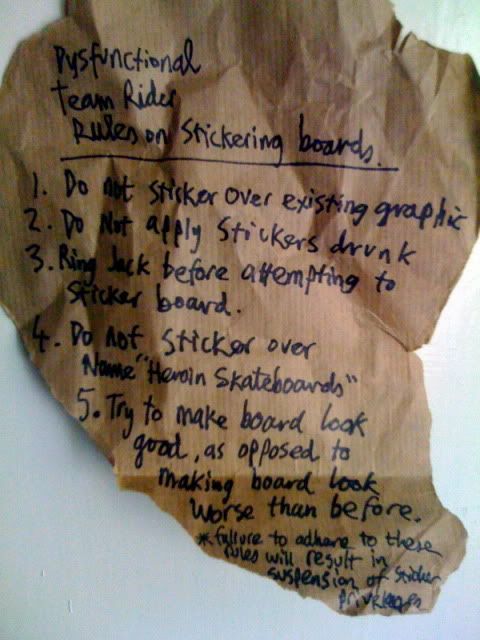 Dysfunctional
Team Rider
Rules on Stickering boards.
1. Do not sticker over existing graphic
2. Do Not apply Stickers drunk
3. Ring Jack before attempting to
sticker board.
4. Do not sticker over
Name "Heroin Skateboards"
5. Try to make board look
good, as opposed to
making board look
worse than before.
*failure to adhere to these
rules will result in
suspension of sticker